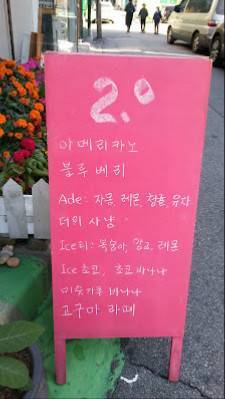 2.0
아메리카노
블루베리
Ade: 자몽, 레몬, 청포, 유자
더위사냥
Ice티: 복숭아, 망고, 레몬
Ice초코, 초코바나나
미숫가루 바나나
고구마 라떼